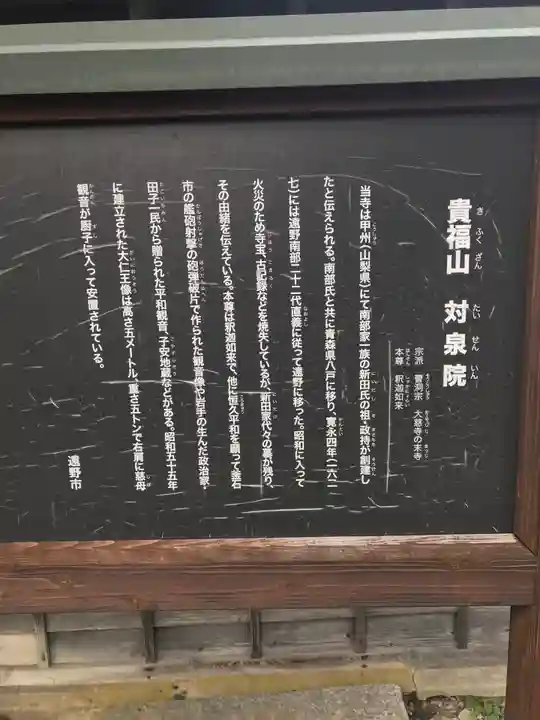 貴福山 対泉院
き ふく ざん たい せん いん
宗派 曹洞宗 大慈寺の末寺
本尊 釈迦如来
当寺は甲州(山梨県)にて南部家一族の新田氏の祖・政持が創建し
たと伝えられる。南部氏と共に青森県八戸に移り、寛永四年(一六二
七)には遠野南部二十二代直義に従って遠野に移った。昭和に入って
火災のため寺宝、古記録などを焼失しているが、新田家代々の墓が残り、
その由緒を伝えている。本尊は釈迦如来で、他に恒久平和を願って釜石
市の艦砲射撃の砲弾破片で作られた観音像や岩手の生んだ政治家・
田子一民から贈られた平和観音、子安地蔵などがある。昭和五十五年
に建立された大仁王像は高さ五メートル、重さ五トンで右肩に慈母
観音が厨子に入って安置されている。
遠野市